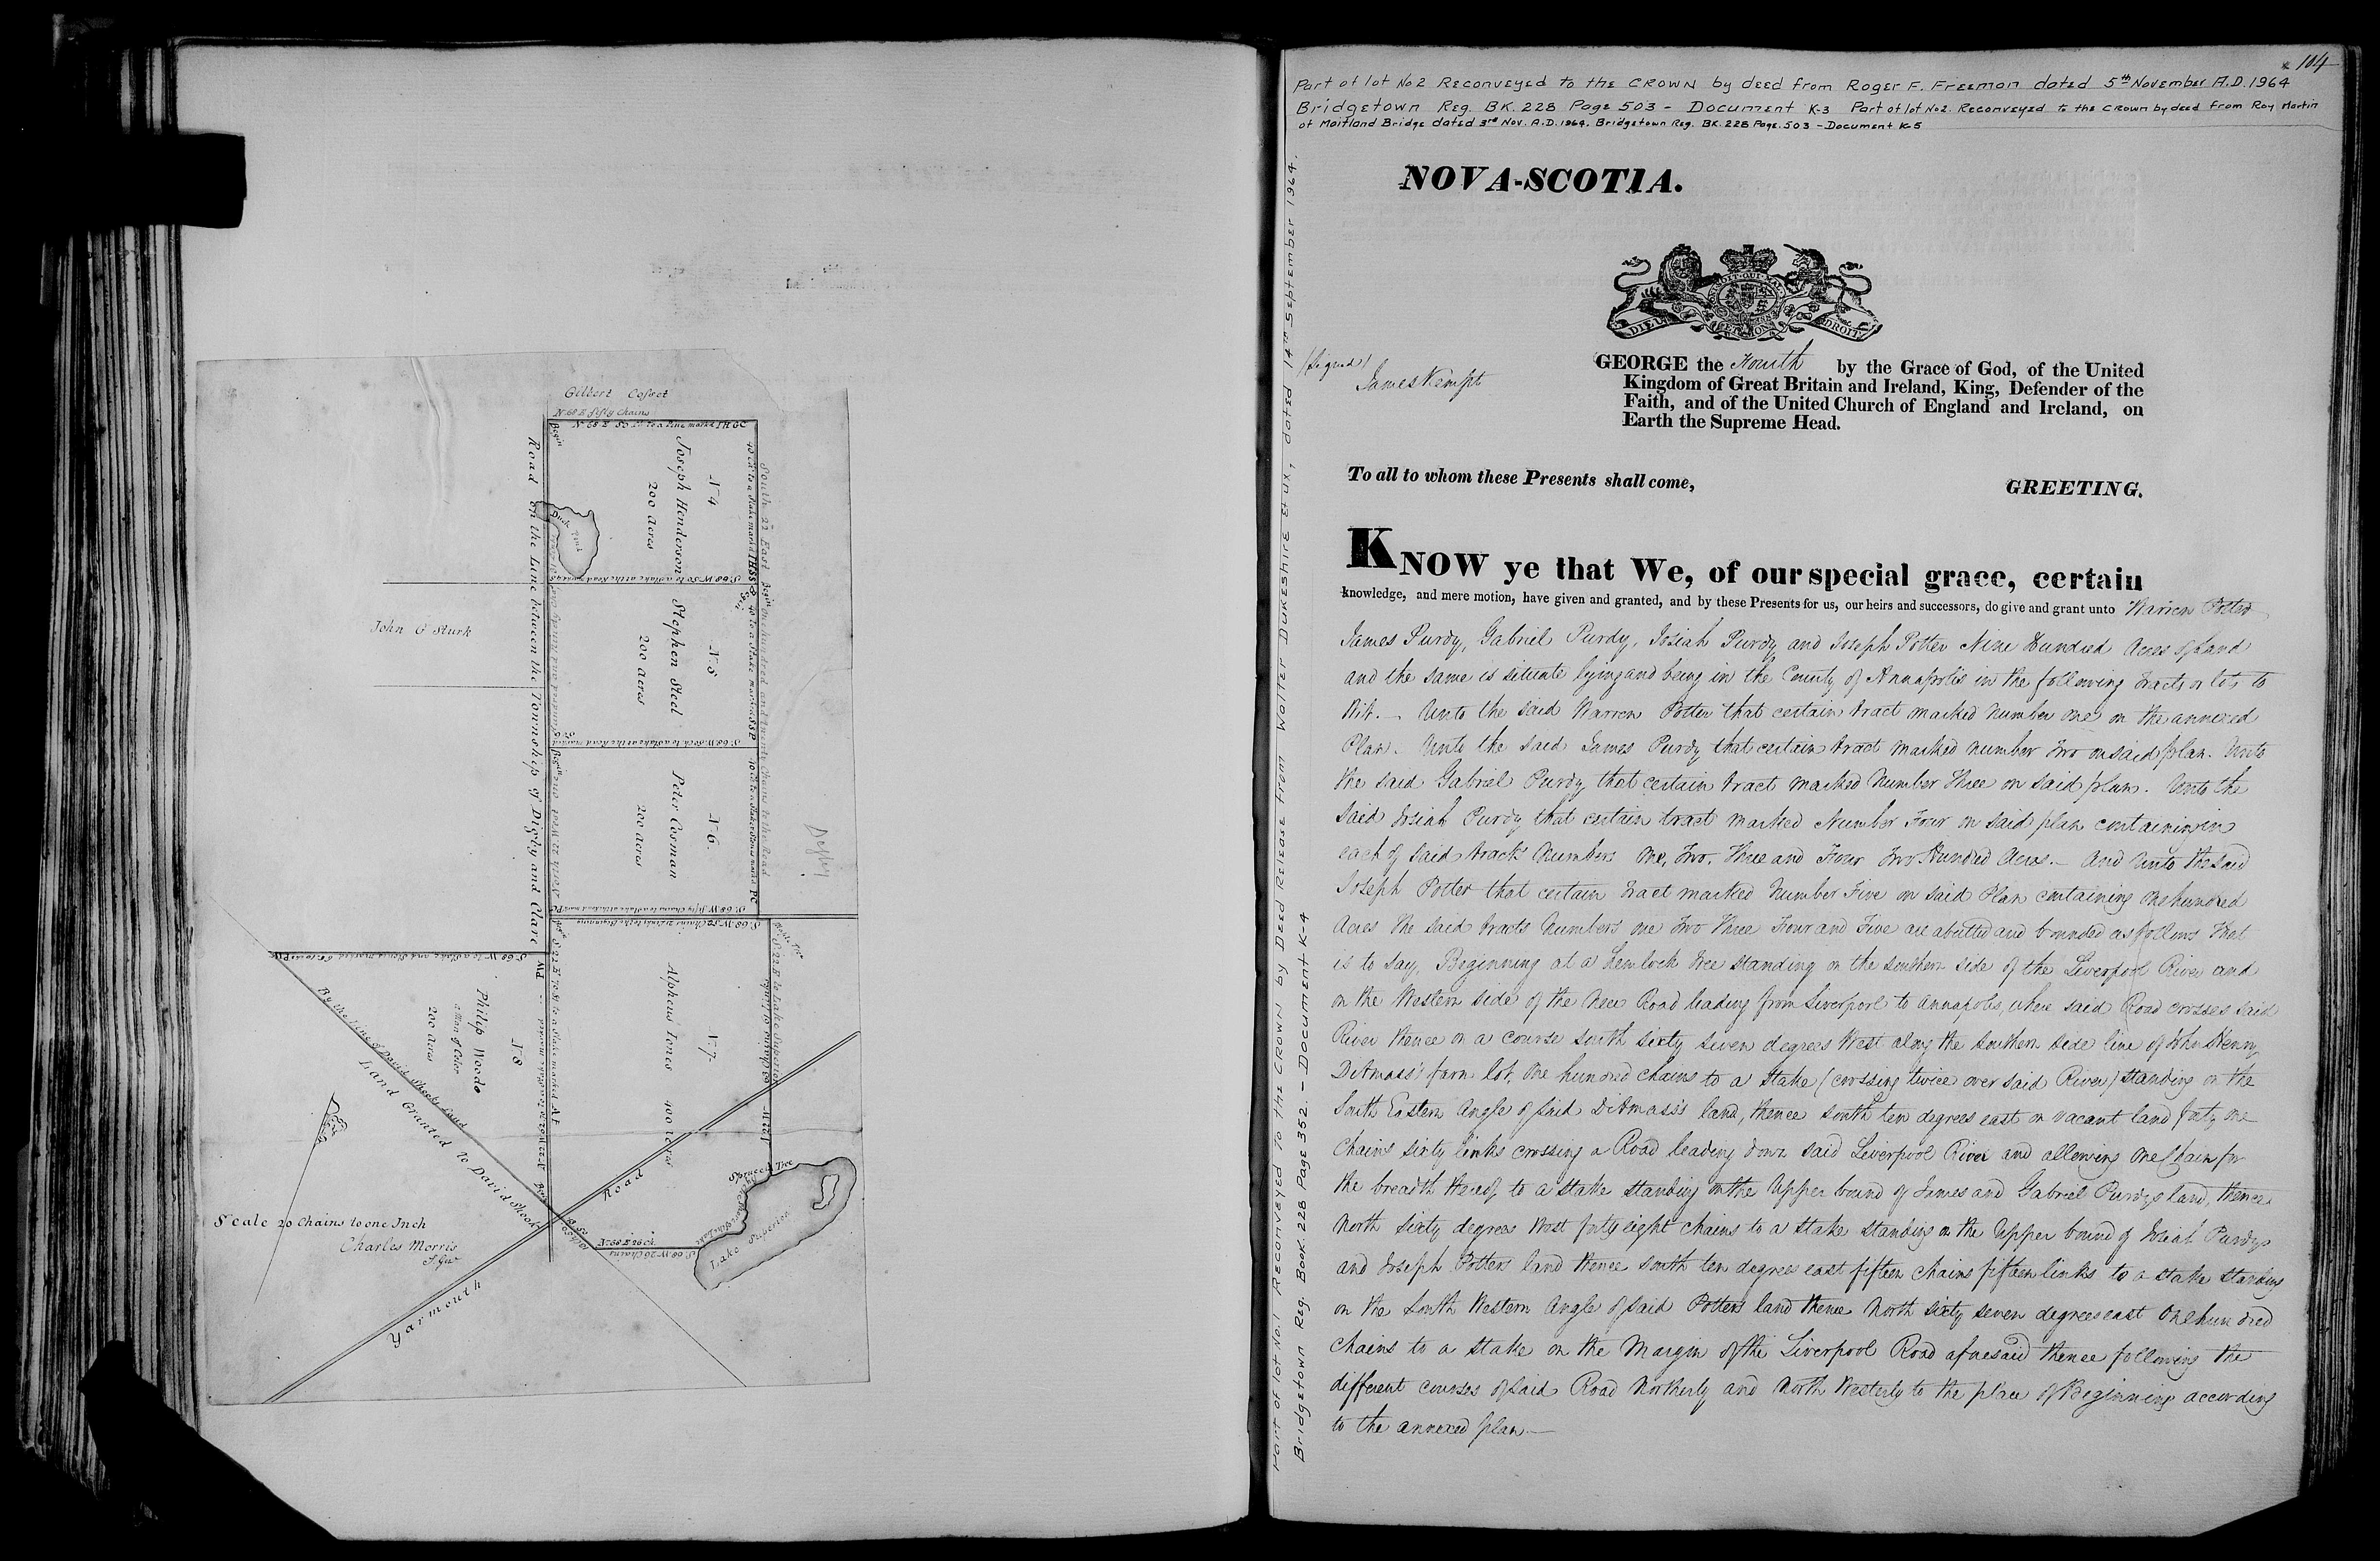 Gilbert Cosset
N. 68 E fifty Chains
N. 68 E 50 Ch. to a Pine marked IH GC
Begin
Joseph Henderson
No 4
200 Acres
Duck Pond
South 22 East One hundred and twenty Chains to the Road
Road on the Line between the Township of Digby and Clare
John G Sturk
Begin
Stephen Steel
No 5
200 Acres
Begin
Peter Corman
No 6.
200 Acres
Digby
Alpheus Jones
No 7.
400 acres
Philip Woods
a Man of Color
200 Acres
No 8
By the line of David Shook's Land
Land Granted to David Shook
Spruce Tree
Lake Superior
N. 68 E 26 Ch.
S. 68 W 26 Chains
Scale 20 Chains to one Inch
Charles Morris
S. Gen
Yarmouth Road
104
Part of lot No 2 Reconveyed to the CROWN by deed from Roger F. Freeman dated 5th November A.D. 1964
Bridgetown Reg. BK. 228 Page 503 - Document K-3 Part of lot No 2. Reconveyed to the Crown by deed from Roy Martin
of Maitland Bridge dated 3rd Nov. A.D. 1964. Bridgetown Reg. BK. 228 Page. 503 - Document K-5
Part of lot No. 1 Reconveyed to the Crown by Deed Release from Walter Dukeshire et ux, dated 14th September 1964.
Bridgetown Reg. Book. 228 Page 352. - Document K-4
NOVA-SCOTIA.
DIEU ET MON DROIT
(Signed)
James Kempt
GEORGE the Fourth by the Grace of God, of the United
Kingdom of Great Britain and Ireland, King, Defender of the
Faith, and of the United Church of England and Ireland, on
Earth the Supreme Head.
To all to whom these Presents shall come,
GREETING.
KNOW ye that We, of our special grace, certain
knowledge, and mere motion, have given and granted, and by these Presents for us, our heirs and successors, do give and grant unto Warren Potter
James Purdy, Gabriel Purdy, Josiah Purdy and Joseph Potter Nine Hundred Acres of Land
and the same is situate lying and being in the County of Annapolis in the following Tracts or lots to
Wit. - Unto the said Warren Potter that certain tract marked number one on the annexed
Plan. Unto the said James Purdy that certain tract marked number Two on said plan. Unto
the said Gabriel Purdy that certain tract marked Number Three on said plan. Unto the
said Josiah Purdy that certain tract marked Number Four on said plan containing in
each of said tracts Numbers One, Two, Three and Four Two Hundred Acres. - And Unto the said
Joseph Potter that certain tract marked Number Five on said Plan containing One hundred
Acres the said tracts Numbers one Two Three Four and Five are abutted and bounded as follows That
is to say, Beginning at a Hemlock Tree standing on the southern side of the Liverpool River and
on the Western side of the New Road leading from Liverpool to Annapolis, where said Road crosses said
River thence on a course South sixty seven degrees West along the southern side line of John Henry
Ditmass's farm lot, One hundred chains to a Stake (crossing twice over said River) standing on the
South Eastern Angle of said Ditmass's land, thence south ten degrees east on vacant land forty one
Chains sixty links crossing a Road leading down said Liverpool River and allowing One Chain for
the breadth thereof, to a stake standing on the Upper bound of James and Gabriel Purdy's land, thence
North sixty degrees West forty eight chains to a stake standing on the Upper bound of Josiah Purdys
and Joseph Potters land thence south ten degrees east fifteen chains fifteen links to a stake standing
on the South Western Angle of said Potters land thence North sixty seven degrees east One hundred
Chains to a stake on the Margin of the Liverpool Road aforesaid thence following the
different courses of said Road Northerly and North Westerly to the place of Beginning according
to the annexed plan.